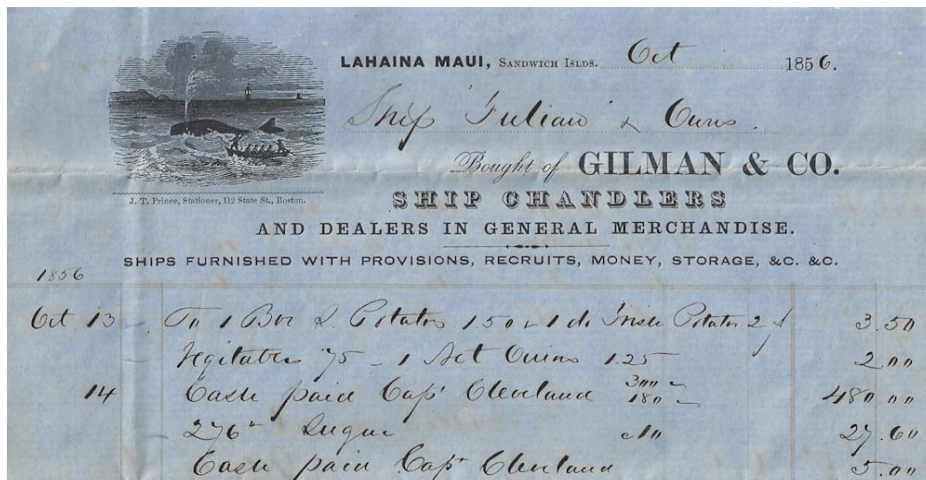 LAHAINA MAUI, SANDWICH ISLDS. Oct 1856.
Ship "Julian" & Owns.
Bought of GILMAN & CO.
J. T. Prince, Stationer, 112 State St., Boston.
SHIP CHANDLERS
AND DEALERS IN GENERAL MERCHANDISE.
SHIPS FURNISHED WITH PROVISIONS, RECRUITS, MONEY, STORAGE, &C. &C.
1856
Oct 13 To 1 Box S. Potatos 150 1 do Irish Potatos 2 3.50
Vegitables 75 - 1 1.25 2 00
14 Cash paid Capt Cleveland 300 180 480 00
276 Sugar 10 27.60
Cash paid Capt Cleveland 5.00